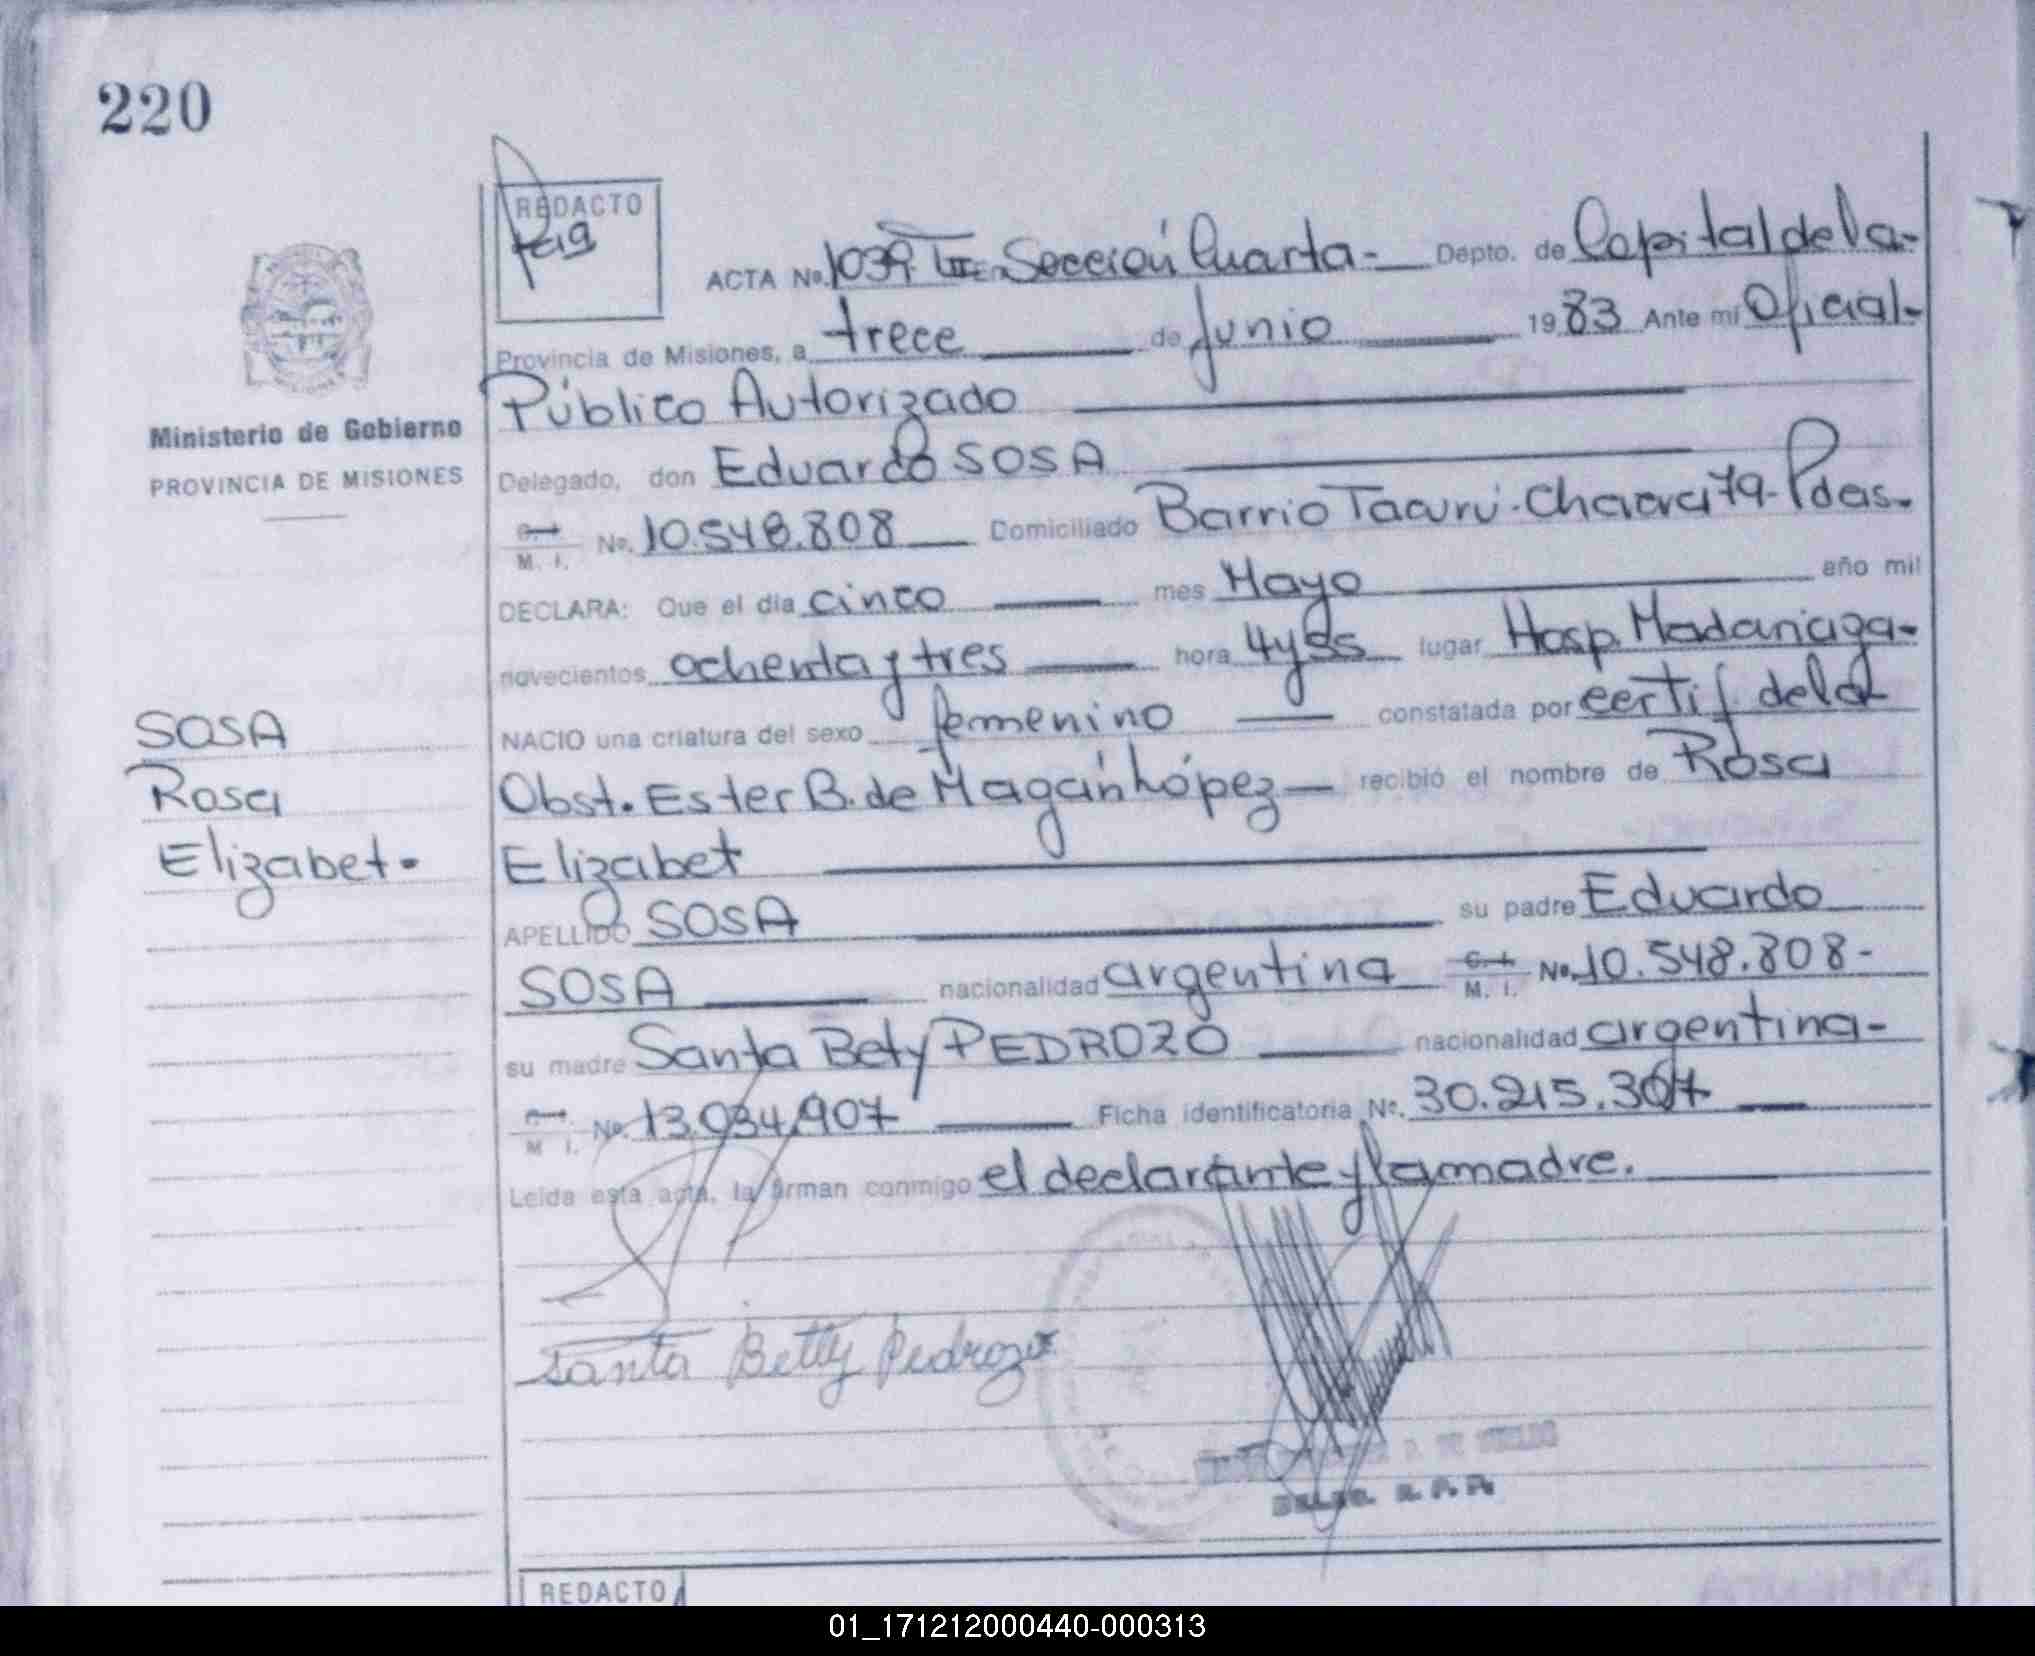 220
REDACTO
ACTA No. 1039. T III. Sección Cuarta - Depto. de Capital de la -
Provincia de Misiones, a trece de Junio 1983 Ante mí Oficial -
Público Autorizado
Ministerio de Gobierno
PROVINCIA DE MISIONES
Delegado, don Eduardo SOSA
C. I. M. I. No. 10.548.808 Domiciliado Barrio Tacurú - Chacra 79 - Pdas.
DECLARA: Que el día cinco mes Mayo año mil
novecientos ochenta y tres hora 4 y 55 lugar Hosp. Madariaga -
NACIO una criatura del sexo femenino constatada por certif. de la
Obst. Ester B. de Magán López recibió el nombre de Rosa
Elizabet
SOSA
Rosa
Elizabet.
APELLIDO SOSA su padre Eduardo
SOSA nacionalidad argentina C. I. M. I. No. 10.548.808 -
su madre Santa Bety PEDROZO nacionalidad argentina -
C. I. M. I. No. 13.034.907 Ficha identificatoria No. 30.215.307
Leída esta acta, la firman conmigo el declarante y la madre.
Santa Betty Pedrozo
DELEG. R. P. P.
REDACTO
01_171212000440-000313